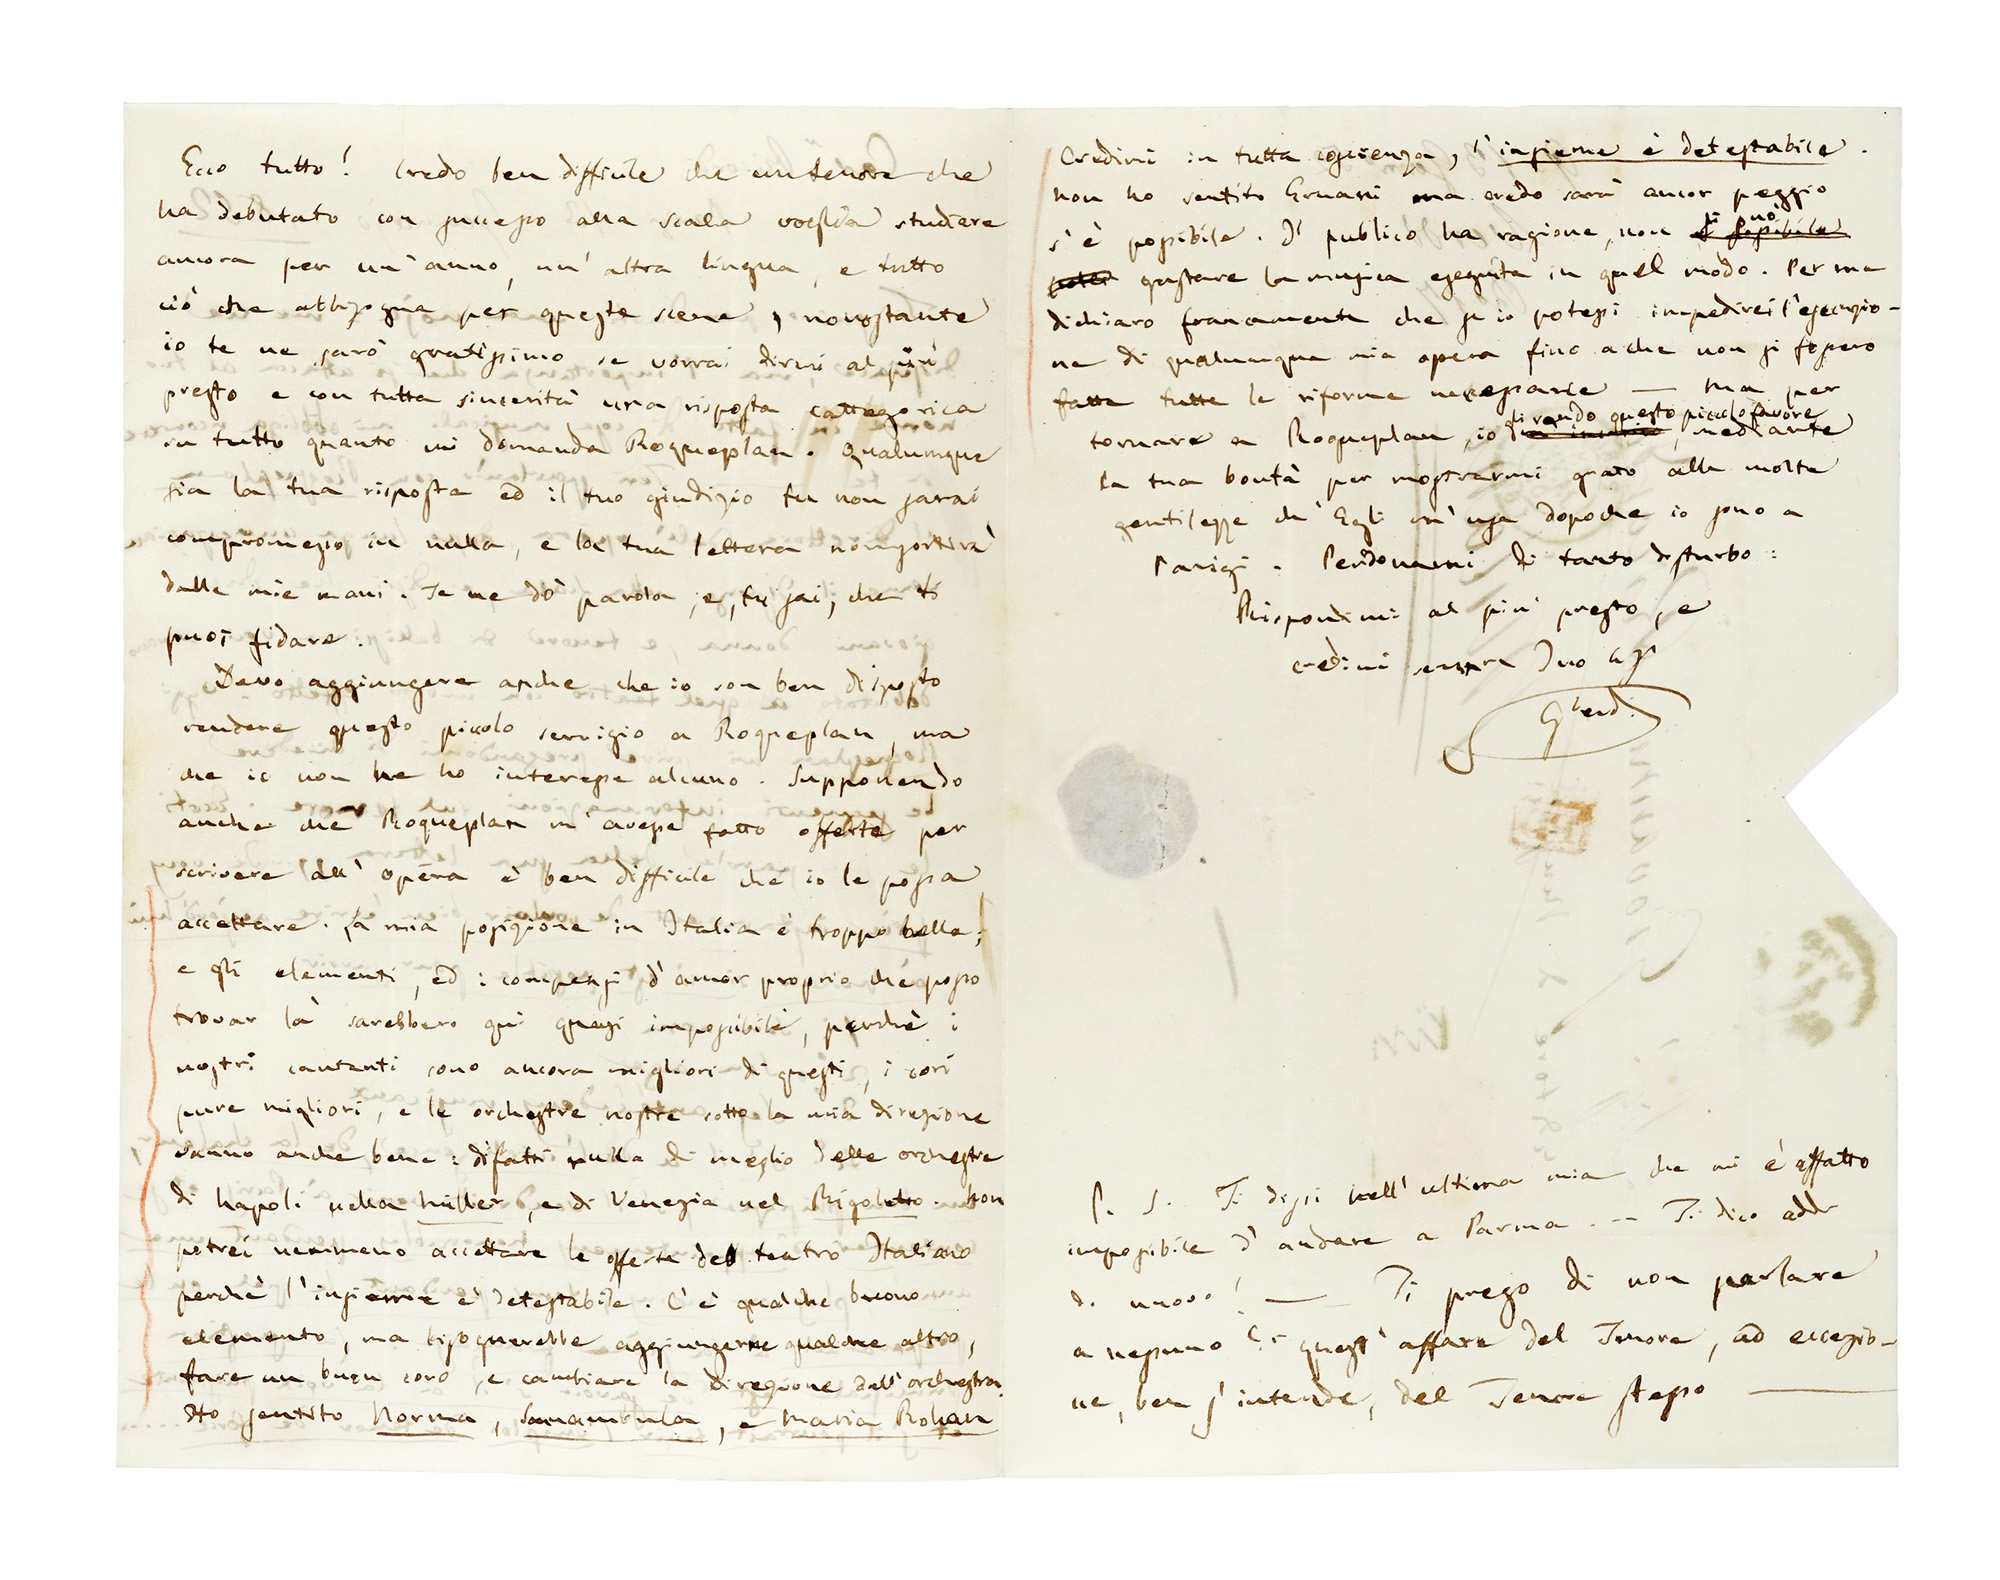 Ecco tutto! Credo ben difficile che un tenore che
ha debutato con successo alla scala voglia studiare
ancora per un'anno, un'altra lingua, e tutto
ciò che abbisogna per queste scene, nonostante
io te ne sarò gratissimo se vorrai dirmi al più
presto e con tutta sincerità una risposta cattegorica
su tutto quanto mi domanda Roqueplan. Qualunque
sia la tua risposta ed il tuo giudizio tu non sarai
compromesso in nulla, e la tua lettera non sortirà
dalle mie mani. Te ne dò parola, e, tu sai, che ti
puoi fidare.
Devo aggiungere anche che io son ben disposto
rendere questo piccolo servizio a Roqueplan, ma
che io non ne ho interesse alcuno. Supponendo
anche che Roqueplan m'avesse fatto offerte per
scrivere all'opera è ben difficile che io le possa
accettare. La mia posizione in Italia è troppo bella;
e gli elementi, ed i compensi d'amor proprio che posso
trovar là sarebbero qui quasi impossibile, perchè i
nostri cantanti sono ancora migliori di questi, i cori
pure migliori, e le orchestre nostre sotto la mia direzione
vanno anche bene: difatti nulla di meglio delle orchestre
di Napoli nella Miller, e di Venezia nel Rigoletto. Non
potrei nemmeno accettare le offerte del teatro Italiano
perchè l'insieme è detestabile. C'è qualche buono
elemento, ma bisognerebbe aggiungerne qualche altro,
fare un buon coro, e cambiare la direzione dell'orchestra.
Ho sentito Norma, Sonambula, e Maria Rohan
Credimi in tutta coscienza, l'insieme è detestabile.
Non ho sentito Ernani ma credo sarà ancor peggio
s'è possibile. Il publico ha ragione, non può
gustare la musica eseguita in quel modo. Per me
dichiaro francamente che se io potessi impedirei l'esecuzio-
ne di qualunque mia opera fino a che non si fossero
fatte tutte le riforme necessarie — Ma per
tornare a Roqueplan, io gli rendo questo piccolo favore, mediante
la tua bontà per mostrarmi grato alle molte
gentilezze ch'Egli m'usa dopoche io sono a
Parigi. Perdonami di tanto disturbo:
Rispondimi al più presto, e
credimi sempre Tuo aff
GVerdi.
P. S. Ti dissi nell'ultima mia che mi è affatto
impossibile d'andare a Parma. -- Ti dico addi
di nuovo! — Ti prego di non parlare
a nessuno di quest'affare del Tenore, ad eccezio-
ne, ben s'intende, del Tenore stesso —